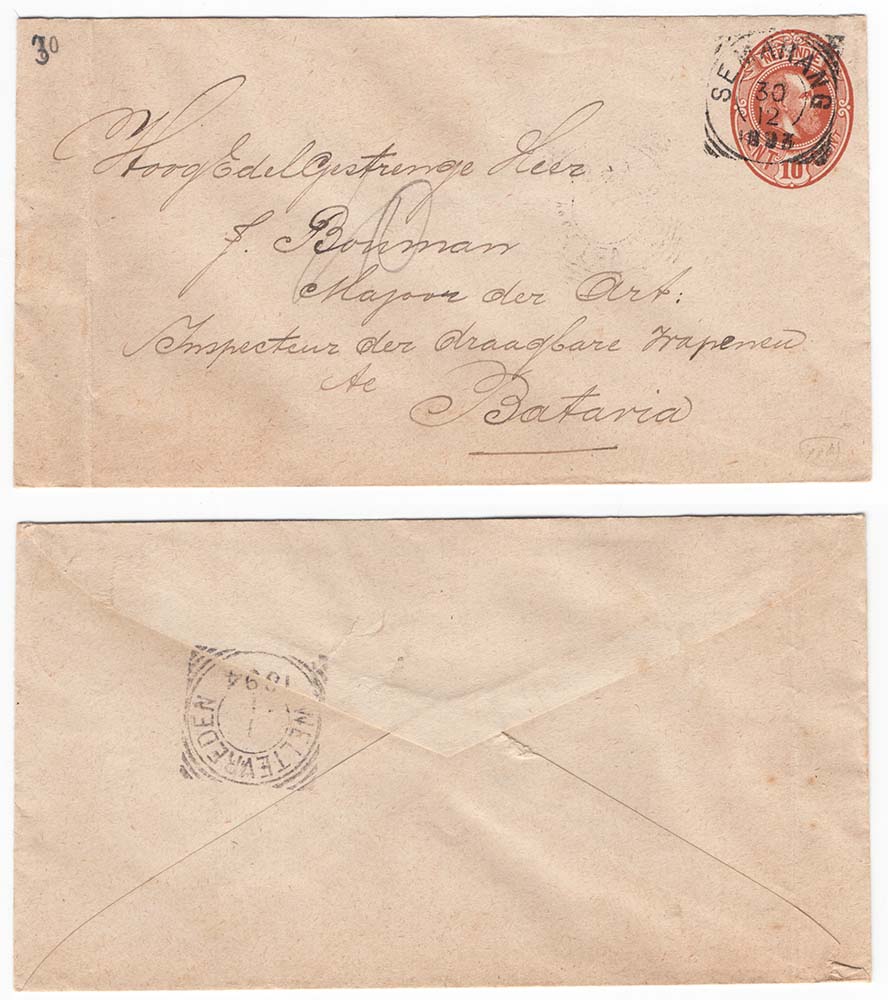 30
SEMARANG
30
12
1893
NED. INDIE
CENT 10 CENT
HoogEdelGestrenge Heer
J. Bouman
10
Majoor der Art:
Inspecteur der draagbare wapenen
te
Batavia
WELTEVREDEN
1
1
1894